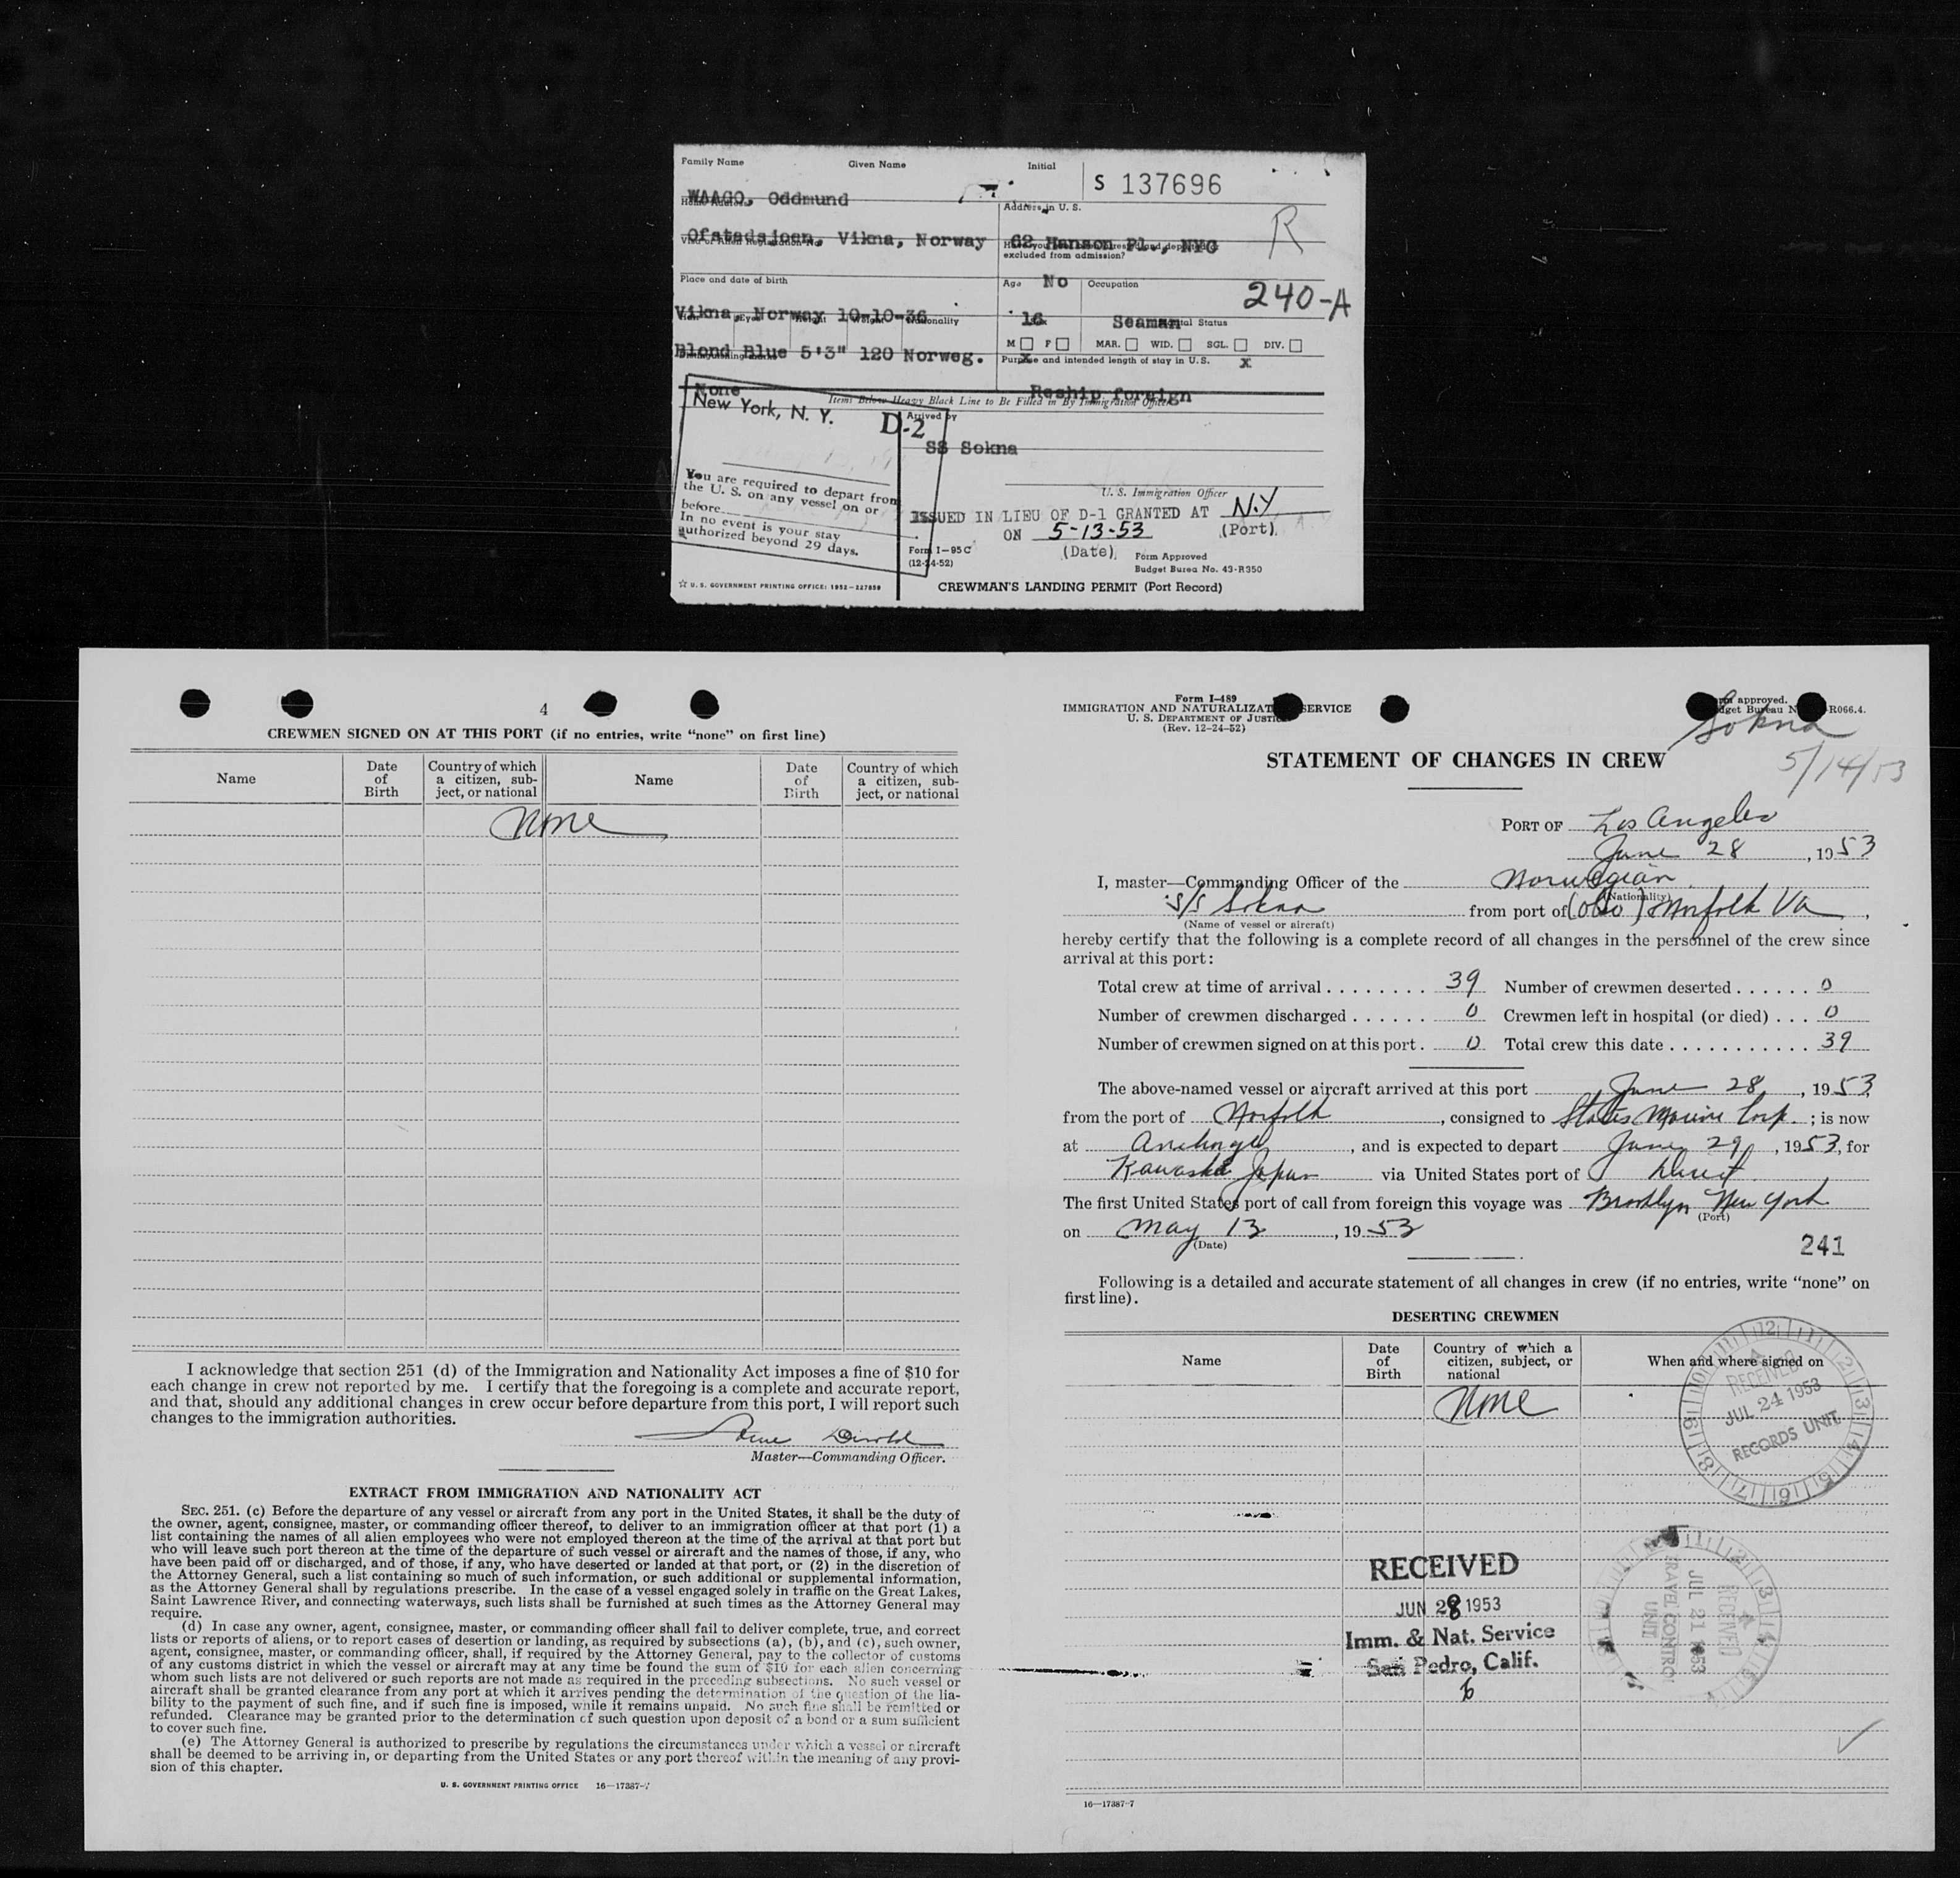 Family Name Given Name Initial S 137696
WAAGO, Oddmund
Home Address Address in U. S. R
Ofstadsjoen, Vikna, Norway 62 Hanson Pl., NYC
Visa or Alien Registration No. Have you ever been arrested and deported or
excluded from admission?
No
Place and date of birth Age Occupation 240-A
Vikna, Norway 10-10-36 16 Seaman
Hair Eyes Height Weight Nationality Sex Marital Status
Blond Blue 5'3" 120 Norweg. M F MAR. WID. SGL. DIV.
X X
Distinguishing marks Purpose and intended length of stay in U.S.
None Reship foreign
Items Below Heavy Black Line to Be Filled in By Immigration Officer
New York, N. Y. D-2 Arrived by
SS Sokna
You are required to depart from
the U. S. on any vessel on or
before
In no event is your stay
authorized beyond 29 days.
U. S. Immigration Officer
ISSUED IN LIEU OF D-1 GRANTED AT N.Y
ON 5-13-53 (Port)
(Date)
Form I-95 C
(12-24-52)
Form Approved
Budget Burea No. 43-R350
☆ U. S. GOVERNMENT PRINTING OFFICE: 1952-227859
CREWMAN'S LANDING PERMIT (Port Record)
4
CREWMEN SIGNED ON AT THIS PORT (if no entries, write “none” on first line)
Name Date of Birth Country of which a citizen, sub-ject, or national Name Date of Birth Country of which a citizen, sub-ject, or national
None
I acknowledge that section 251 (d) of the Immigration and Nationality Act imposes a fine of $10 for
each change in crew not reported by me. I certify that the foregoing is a complete and accurate report,
and that, should any additional changes in crew occur before departure from this port, I will report such
changes to the immigration authorities.
Master—Commanding Officer.
EXTRACT FROM IMMIGRATION AND NATIONALITY ACT
SEC. 251. (c) Before the departure of any vessel or aircraft from any port in the United States, it shall be the duty of
the owner, agent, consignee, master, or commanding officer thereof, to deliver to an immigration officer at that port (1) a
list containing the names of all alien employees who were not employed thereon at the time of the arrival at that port but
who will leave such port thereon at the time of the departure of such vessel or aircraft and the names of those, if any, who
have been paid off or discharged, and of those, if any, who have deserted or landed at that port, or (2) in the discretion of
the Attorney General, such a list containing so much of such information, or such additional or supplemental information,
as the Attorney General shall by regulations prescribe. In the case of a vessel engaged solely in traffic on the Great Lakes,
Saint Lawrence River, and connecting waterways, such lists shall be furnished at such times as the Attorney General may
require.
(d) In case any owner, agent, consignee, master, or commanding officer shall fail to deliver complete, true, and correct
lists or reports of aliens, or to report cases of desertion or landing, as required by subsections (a), (b), and (c), such owner,
agent, consignee, master, or commanding officer, shall, if required by the Attorney General, pay to the collector of customs
of any customs district in which the vessel or aircraft may at any time be found the sum of $10 for each alien concerning
whom such lists are not delivered or such reports are not made as required in the preceding subsections. No such vessel or
aircraft shall be granted clearance from any port at which it arrives pending the determination of the question of the lia-
bility to the payment of such fine, and if such fine is imposed, while it remains unpaid. No such fine shall be remitted or
refunded. Clearance may be granted prior to the determination of such question upon deposit of a bond or a sum sufficient
to cover such fine.
(e) The Attorney General is authorized to prescribe by regulations the circumstances under which a vessel or aircraft
shall be deemed to be arriving in, or departing from the United States or any port thereof within the meaning of any provi-
sion of this chapter.
U. S. GOVERNMENT PRINTING OFFICE 16—17387-7
Form I-489
IMMIGRATION AND NATURALIZAT SERVICE
U. S. DEPARTMENT OF JUSTIC
(Rev. 12-24-52)
rm approved.
dget Bureau N -R066.4.
Sokna
5/14/53
STATEMENT OF CHANGES IN CREW
PORT OF Los Angeles
June 28, 1953
I, master—Commanding Officer of the Norwegian
(Nationality)
S/S Sokna from port of (Oslo) Norfolk Va,
(Name of vessel or aircraft)
hereby certify that the following is a complete record of all changes in the personnel of the crew since
arrival at this port:
Total crew at time of arrival 39 Number of crewmen deserted 0
Number of crewmen discharged 0 Crewmen left in hospital (or died) 0
Number of crewmen signed on at this port 0 Total crew this date 39
The above-named vessel or aircraft arrived at this port June 28, 1953
from the port of Norfolk, consigned to States Marine Corp.; is now
at Anchorge, and is expected to depart June 29, 1953, for
Kawaski Japan via United States port of Direct
The first United States port of call from foreign this voyage was Brooklyn New York
(Port)
on May 13, 1953
(Date)
241
Following is a detailed and accurate statement of all changes in crew (if no entries, write “none” on
first line).
DESERTING CREWMEN
Name Date of Birth Country of which a citizen, subject, or national When and where signed on
None
RECEIVED
JUL 24 1953
RECORDS UNIT
RECEIVED
JUN 28 1953
Imm. & Nat. Service
San Pedro, Calif.
6
RECEIVED
JUL 21 1953
TRAVEL CONTROL
UNIT
16—17387-7